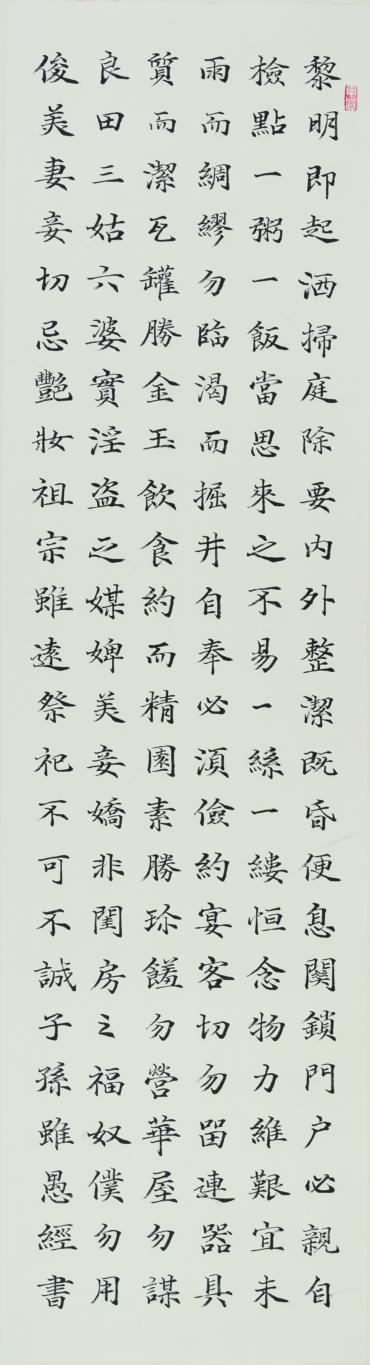 黎明即起洒掃庭除要内外整潔既昏便息關鎖門户必親自
檢點一粥一飯當思來之不易一絲一縷恒念物力維艱宜未
雨而綢繆勿臨渴而掘井自奉必須儉約宴客切勿留連器具
質而潔瓦罐勝金玉飲食約而精園素勝珍饈勿營華屋勿謀
良田三姑六婆實淫盗之媒婢美妾嬌非閨房之福奴僕勿用
俊美妻妾切忌豔妝祖宗雖遠祭祀不可不誠子孫雖愚經書